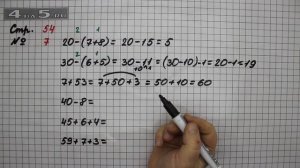 4 а 5.NET
Стр. 54
2 1
№ 7 20-(7+8)= 20-15=5
2 1
30-(6+5)= 30-11=(30-10)-1=20-1=19
10 1
7+53= 7+50+3 = 50+10=60
40-8=
45+6+4=
59+7+3=